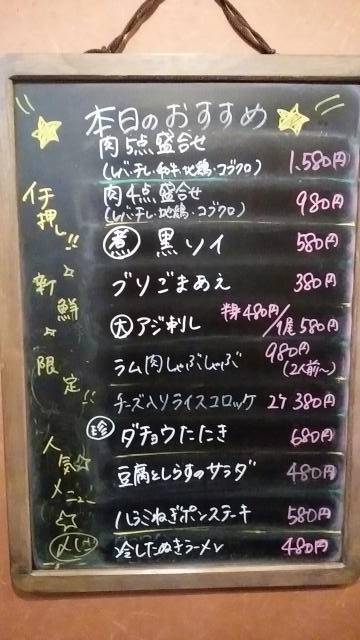 本日のおすすめ
肉5点盛合せ
(レバ・チレ・和牛・地鶏・コブクロ) 1,580円
肉4点盛合せ
(レバ・チレ・地鶏・コブクロ) 980円
煮 黒ソイ 580円
ブリごまあえ 380円
大 アジ刺し 半身480円/1尾580円
ラム肉しゃぶしゃぶ 980円
(2人前〜)
チーズ入りライスコロッケ 2ケ 380円
珍 ダチョウたたき 680円
豆腐としらすのサラダ 480円
ハラミねぎポンステーキ 580円
冷したぬきラーメン 480円
イチ押し!!
新鮮
限定!!
人気メニュー
〆